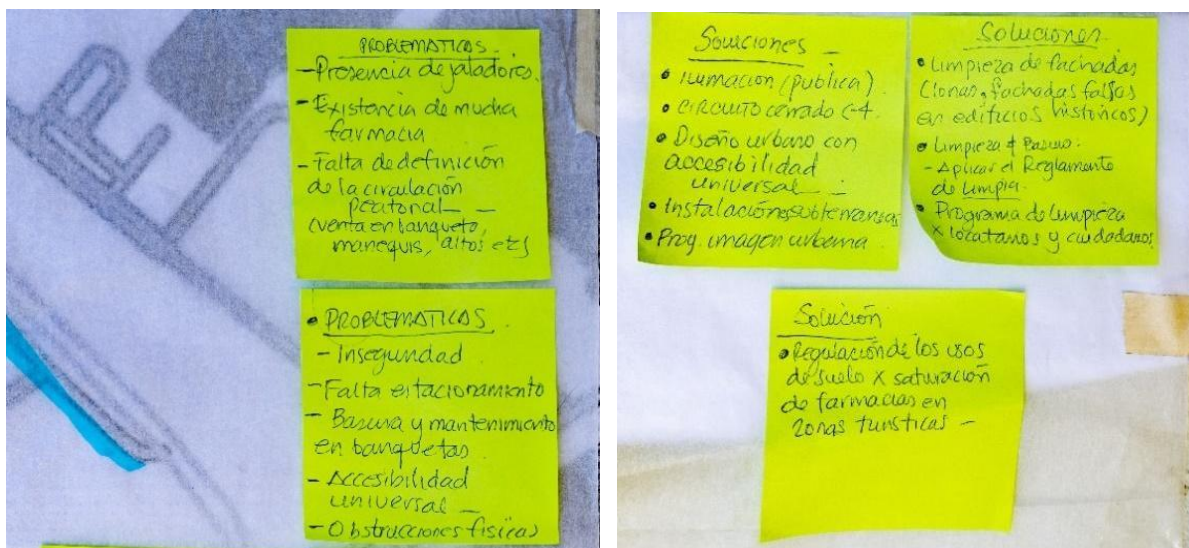 PROBLEMATICAS.
- Presencia de jaladores.
- Existencia de mucha
farmacia
- Falta de definición
de la circulación
peatonal -
(venta en banqueta,
manequis, altos etc)
• PROBLEMATICAS.
- Inseguridad
- Falta estacionamiento
- Basura y mantenimiento
en banquetas.
- Accesibilidad
universal -
- Obstrucciones fisicas
Souciones -
• Ilumacion (publica).
• CIRCUITO cerrado C-4.
• Diseño urbano con
accesibilidad
universal - .
• Instalación subterraneas
• Prog. imagen urbana
Soluciones.
• Limpieza de fachadas
(lonas, fachadas falsas
en edificios históricos)
• Limpieza
- Aplicar el Reglamento
de Limpia.
• Programa de limpieza
x locatarios y ciudadanos
Solución
• Regulación de los usos
de suelo x saturación
de farmacias en
zonas turisticas -